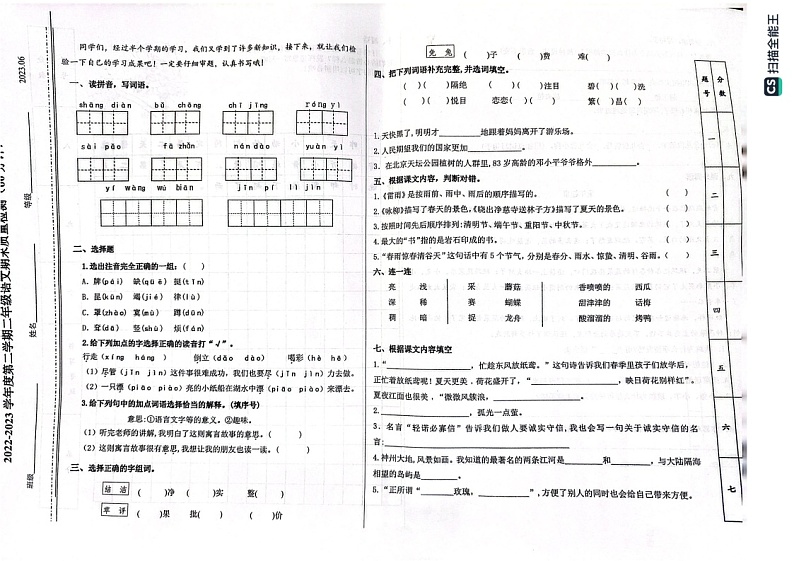 2022-2023 学年度第二学期二年级语文期末质量检测
2023.06
班级
姓名
等级
同学们，经过半个学期的学习，我们又学到了许多新知识，接下来，就让我们检
验一下自己的学习成果吧！一定要仔细审题，认真书写哦！
一、读拼音，写词语。
shāng diàn bǔ chōng chī jīng róng yì
sài pǎo fā zhǎn nán dào yuàn yì
yí wàng wú biān jīn pí lì jìn
二、选择题
1.选出注音完全正确的一组：( )
2.给下列加点的字选择正确的读音打“√”。
行走（xíng háng ） 倒立（dǎo dào） 喝彩（hè hē）
（1）尽管（jǐn jìn）这件事很难成功，我们也要尽（jǐn jìn）力去做。
（2）一只漂（piāo piào）亮的小纸船在湖水中漂（piāo piào）来漂去。
3.给下列句中的加点词语选择恰当的解释。(填序号)
意思:①语言文字等的意义。②趣味。
（1）听完老师的讲解，我明白了这则寓言故事的意思。（ ）
（2）这则寓言故事很有意思，我想让我的朋友也读一读。（ ）
三、选择正确的字组词。
结 洁 ( )净 ( )实 整( )
苹 评 ( )果 批( ) ( )价
免 兔 ( )子 ( )费 难( )
四、把下列词语补充完整，并选词填空。
( )( )隔绝 ( )( )注目 碧( )( )洗
( )( )悦目 恋恋( )( ) 繁( )昌( )
1.天快黑了，明明才 地跟着妈妈离开了游乐场。
2.人民期望我们的国家更加 。
3.在北京天坛公园植树的人群里，83 岁高龄的邓小平爷爷格外 。
五、根据课文内容，判断对错。
1.《雷雨》是按雨前、雨中、雨后的顺序描写的。 ( )
2.《咏柳》描写了春天的景色，《晓出净慈寺送林子方》描写了夏天的景色。 ( )
3.按照时间先后顺序排列:清明节、端午节、重阳节、中秋节。 ( )
4.最大的“书”指的是岩石印成的书。 ( )
5.“春雨惊春清谷天”这句话中有 5 个节气，分别是春分、雨水、惊蛰、清明、谷雨。( )
六、连一连
亮 浅 采 蘑菇 香喷喷的 西瓜
深 稀 赛 蝴蝶 甜津津的 话梅
稠 暗 捉 龙舟 酸溜溜的 烤鸭
七、根据课文内容填空
1.“ ，忙趁东风放纸鸢。”这句诗告诉我们春季里孩子们放学后，
正忙着放纸鸢呢！夏天更美，荷花盛开了，“ ，映日荷花别样红”。
夏夜江面也很美，“微微风簇浪， 。
2. ，孤光一点萤。
3.名言“轻诺必寡信”告诉我们做人要诚实守信，我也会写一句关于诚实守信的名
言：
4.神州大地，风景如画。我知道的最著名的两条江河是 和 ，与大陆隔海
相望的岛屿是 。
5.“正所谓“ 玫瑰， ”，方便了别人的同时也会给自己带来方便。
题号 分数
一
二
三
四
五
六
七
CS 扫描全能王